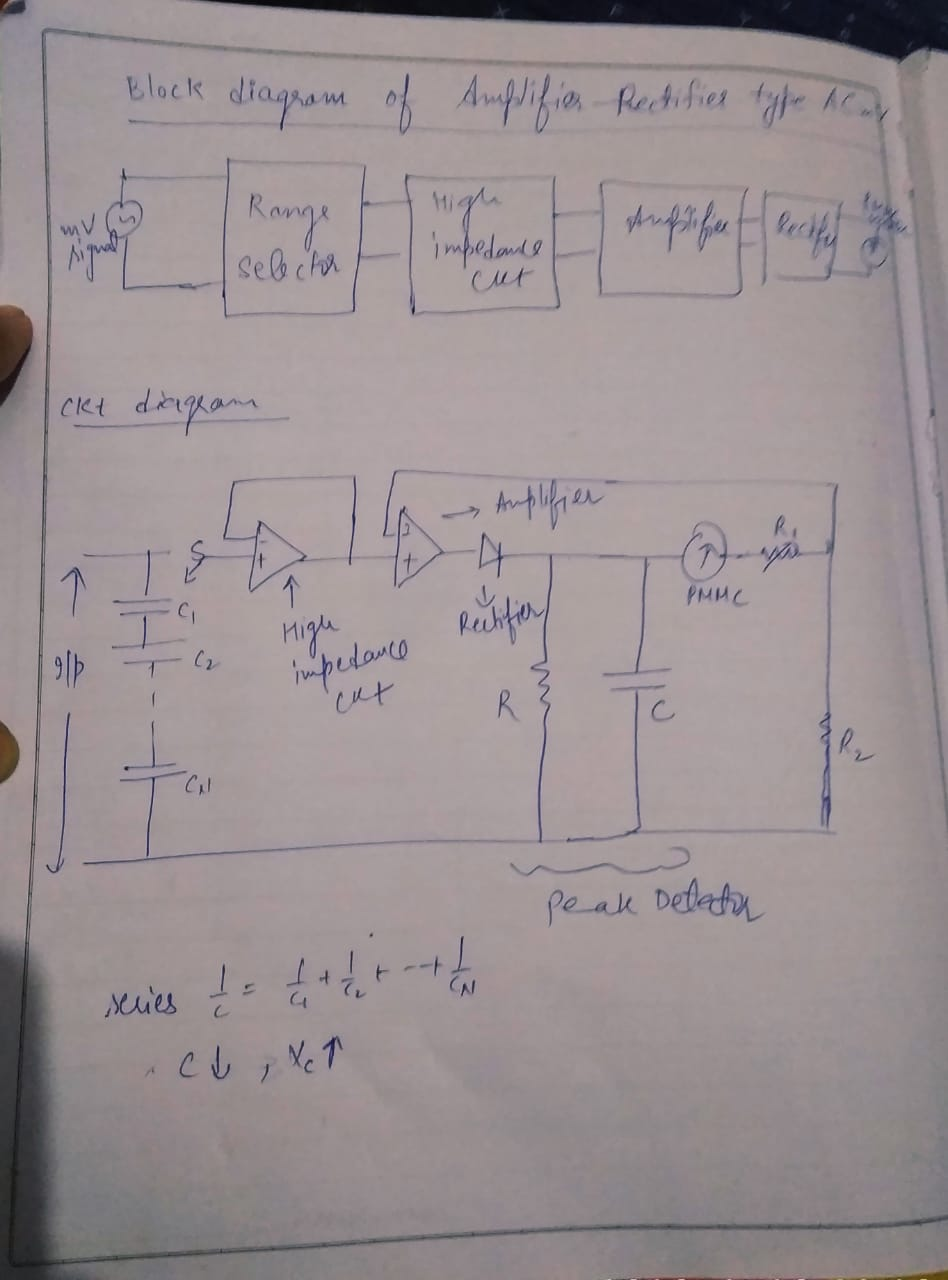 Block diagram of Amplifier-Rectifier type AC
mV signal
Range selector
High impedance ckt
Amplifier
Rectify
ckt diagram
→ Amplifier
R1
PMMC
Rectifier
C1
High impedance ckt
I/p
C2
R
C
R2
CN
Peak Detector
series 1/C = 1/C1 + 1/C2 + --+ 1/CN
C↓, Xc↑